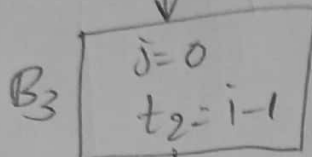 B3
j=0
t2=i-1